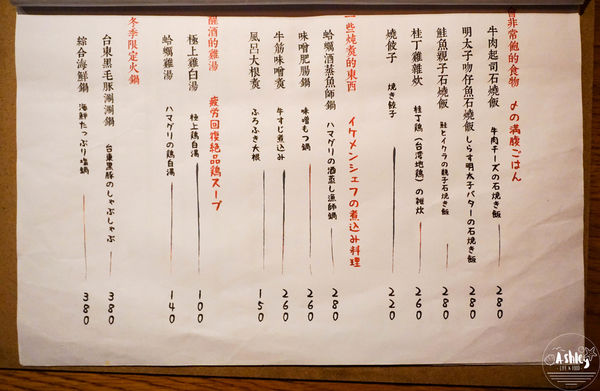 會非常飽的食物 〆の満腹ごはん
牛肉起司石燒飯 牛肉チーズの石焼き飯 280
明太子吻仔魚石燒飯 しらす明太子バターの石焼き飯 280
鮭魚親子石燒飯 鮭とイクラの親子石焼き飯 280
桂丁雞雜炊 桂丁鶏(台湾地鶏)の雑炊 260
燒餃子 焼き餃子 220
一些燒煮的東西 イケメンシェフの煮込み料理
蛤蠣酒蒸魚師鍋 ハマグリの酒蒸し漁師鍋 280
味噌肥腸鍋 味噌もつ鍋 260
牛筋味噌煮 牛すじ煮込み 260
風呂大根煮 ふろふき大根 150
醒酒的雞湯 疲労回復絶品鶏スープ
極上雞白湯 極上鶏白湯 100
蛤蠣雞湯 ハマグリの鶏白湯 140
冬季限定火鍋
台東黑毛豚涮涮鍋 台東黒豚のしゃぶしゃぶ 380
綜合海鮮鍋 海鮮たっぷり塩鍋 380
Ashley
LIFE & FOOD